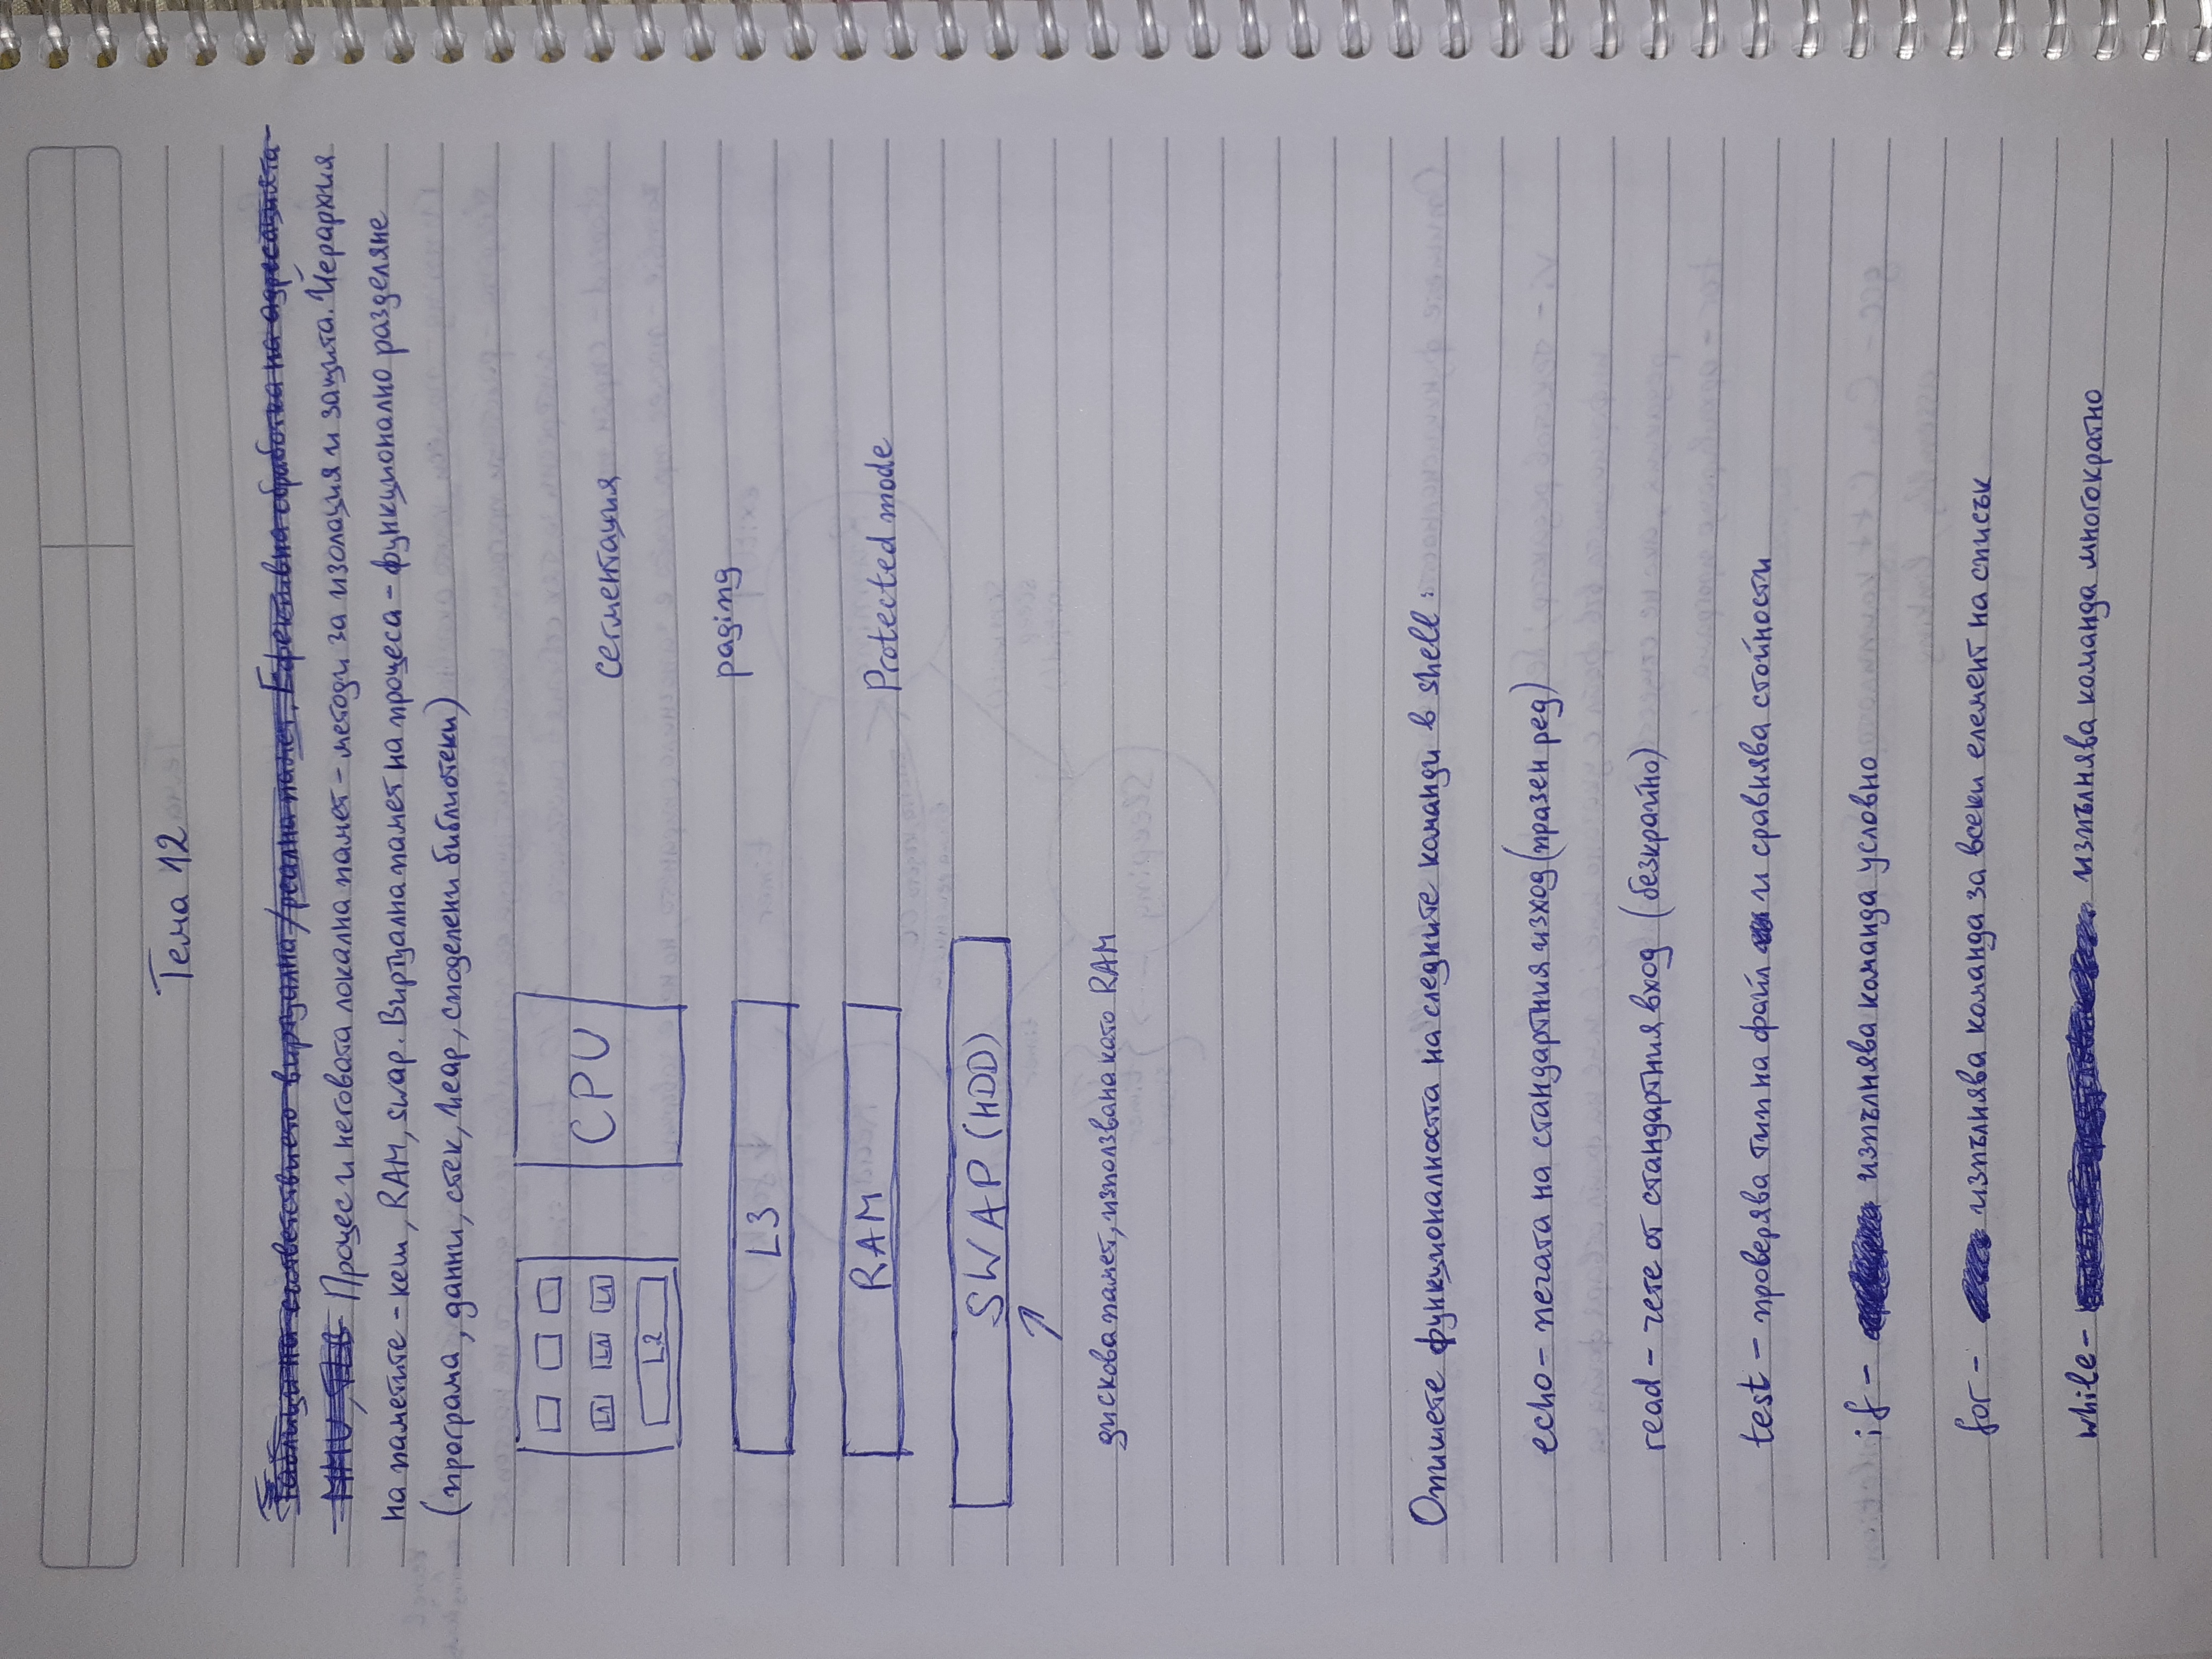 Тема 12
Таблици на съответствието виртуална/реална памет. Ефективна обработка на адресацията -
MMU, TLB Процес и неговата локална памет - методи за изолация и защита. Йерархия
на паметите - кеш, RAM, swap. Виртуална памет на процеса - функционално разделяне
(програма, данни, стек, heap, споделени библиотеки)
L1 L1 L1
L2
CPU
L3
RAM
SWAP (HDD)
дискова памет, използвана като RAM
сегментация
paging
Protected mode
Опишете функционалността на следните команди в shell:
echo - печата на стандартния изход (празен ред)
read - чете от стандартния вход (безкрайно)
test - проверява тип на файл и сравнява стойности
if - изпълнява команда условно
for - изпълнява команда за всеки елемент на списък
while - изпълнява команда многократно